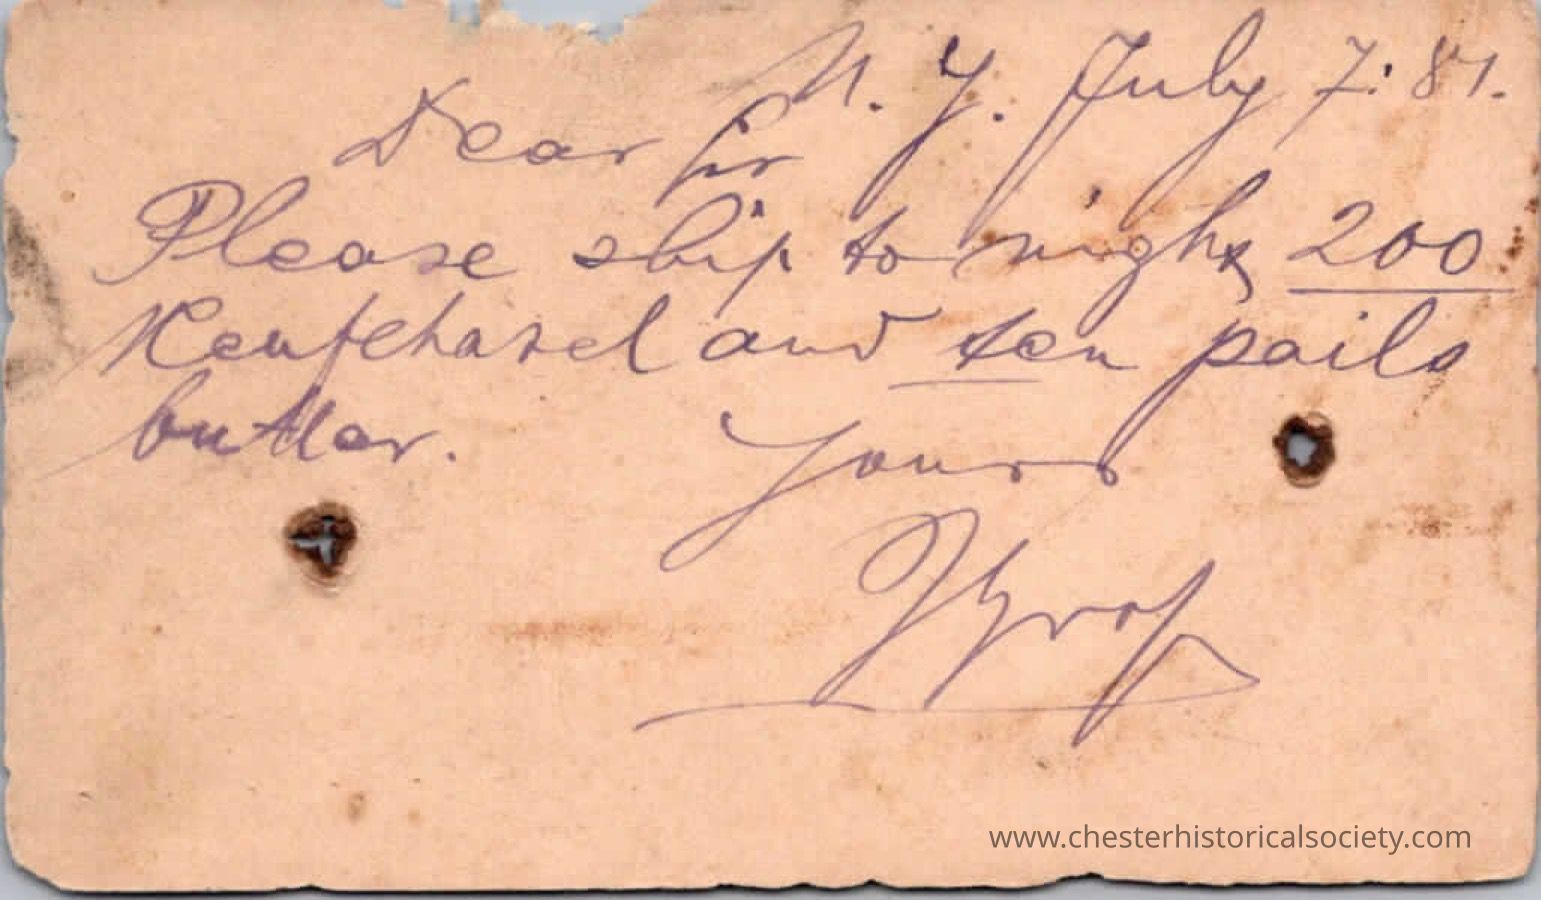 N. Y. July 7. 81.
Dear Sir
Please ship to night 200
Neufchatel and ten pails
butter.
Yours
www.chesterhistoricalsociety.com